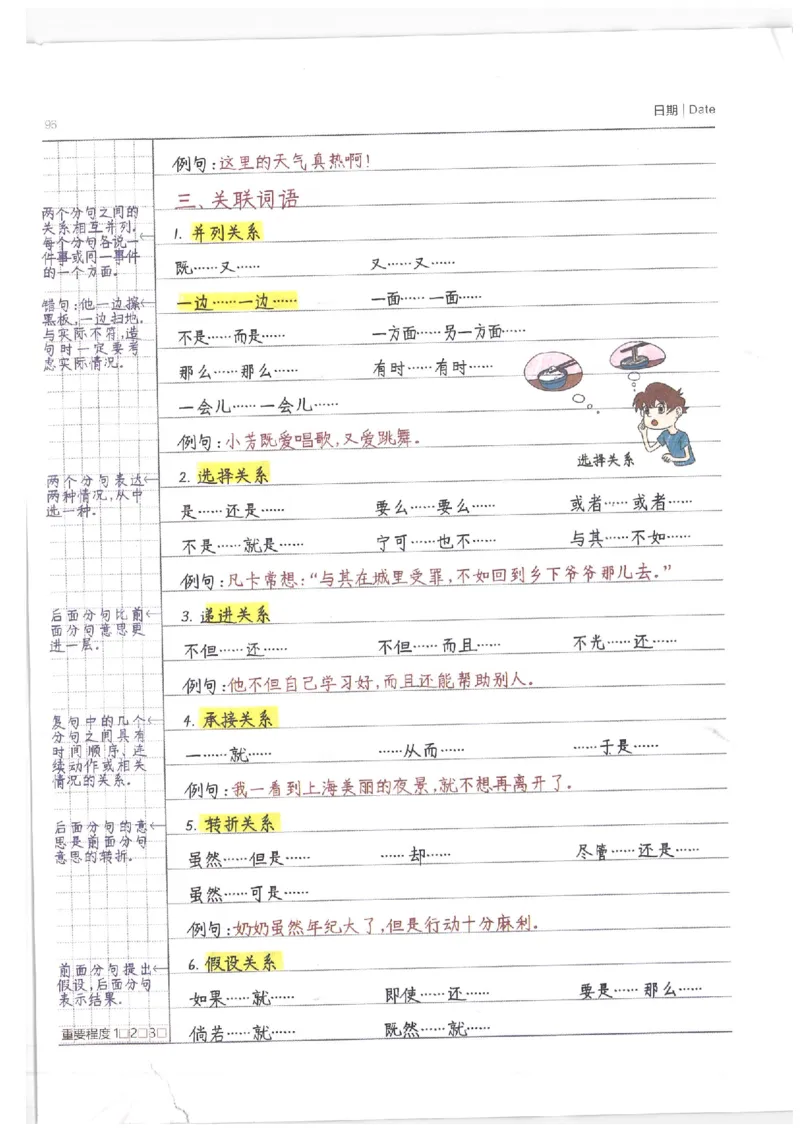 96
日期 | Date
例句:这里的天气真热啊!
三、关联词语
两个分句之间的
关系相互并列。
每个分句各说一
件事或同一事件
的一个方面。
1. 并列关系
既……又……  又……又……
错句:他一边擦
黑板,一边扫地。
与实际不符,造
句时一定要考
虑实际情况。
一边……一边……  一面……一面……
不是……而是……  一方面……另一方面……
那么……那么……  有时……有时……
一会儿……一会儿……
例句:小芳既爱唱歌,又爱跳舞。
选择关系
两个分句表达
两种情况,从中
选一种。
2. 选择关系
是……还是……  要么……要么……  或者……或者……
不是……就是……  宁可……也不……  与其……不如……
例句:凡卡常想:“与其在城里受罪,不如回到乡下爷爷那儿去。”
后面分句比前
面分句意思更
进一层。
3. 递进关系
不但……还……  不但……而且……  不光……还……
例句:他不但自己学习好,而且还能帮助别人。
复句中的几个
分句之间具有
时间顺序、连
续动作或相关
情况的关系。
4. 承接关系
一……就……  ……从而……  ……于是……
例句:我一看到上海美丽的夜景,就不想再离开了。
后面分句的意
思是前面分句
意思的转折。
5. 转折关系
虽然……但是……  ……却……  尽管……还是……
虽然……可是……
例句:奶奶虽然年纪大了,但是行动十分麻利。
前面分句提出
假设,后面分句
表示结果。
6. 假设关系
如果……就……  即使……还……  要是……那么……
倘若……就……  既然……就……
重要程度 1□2□3□